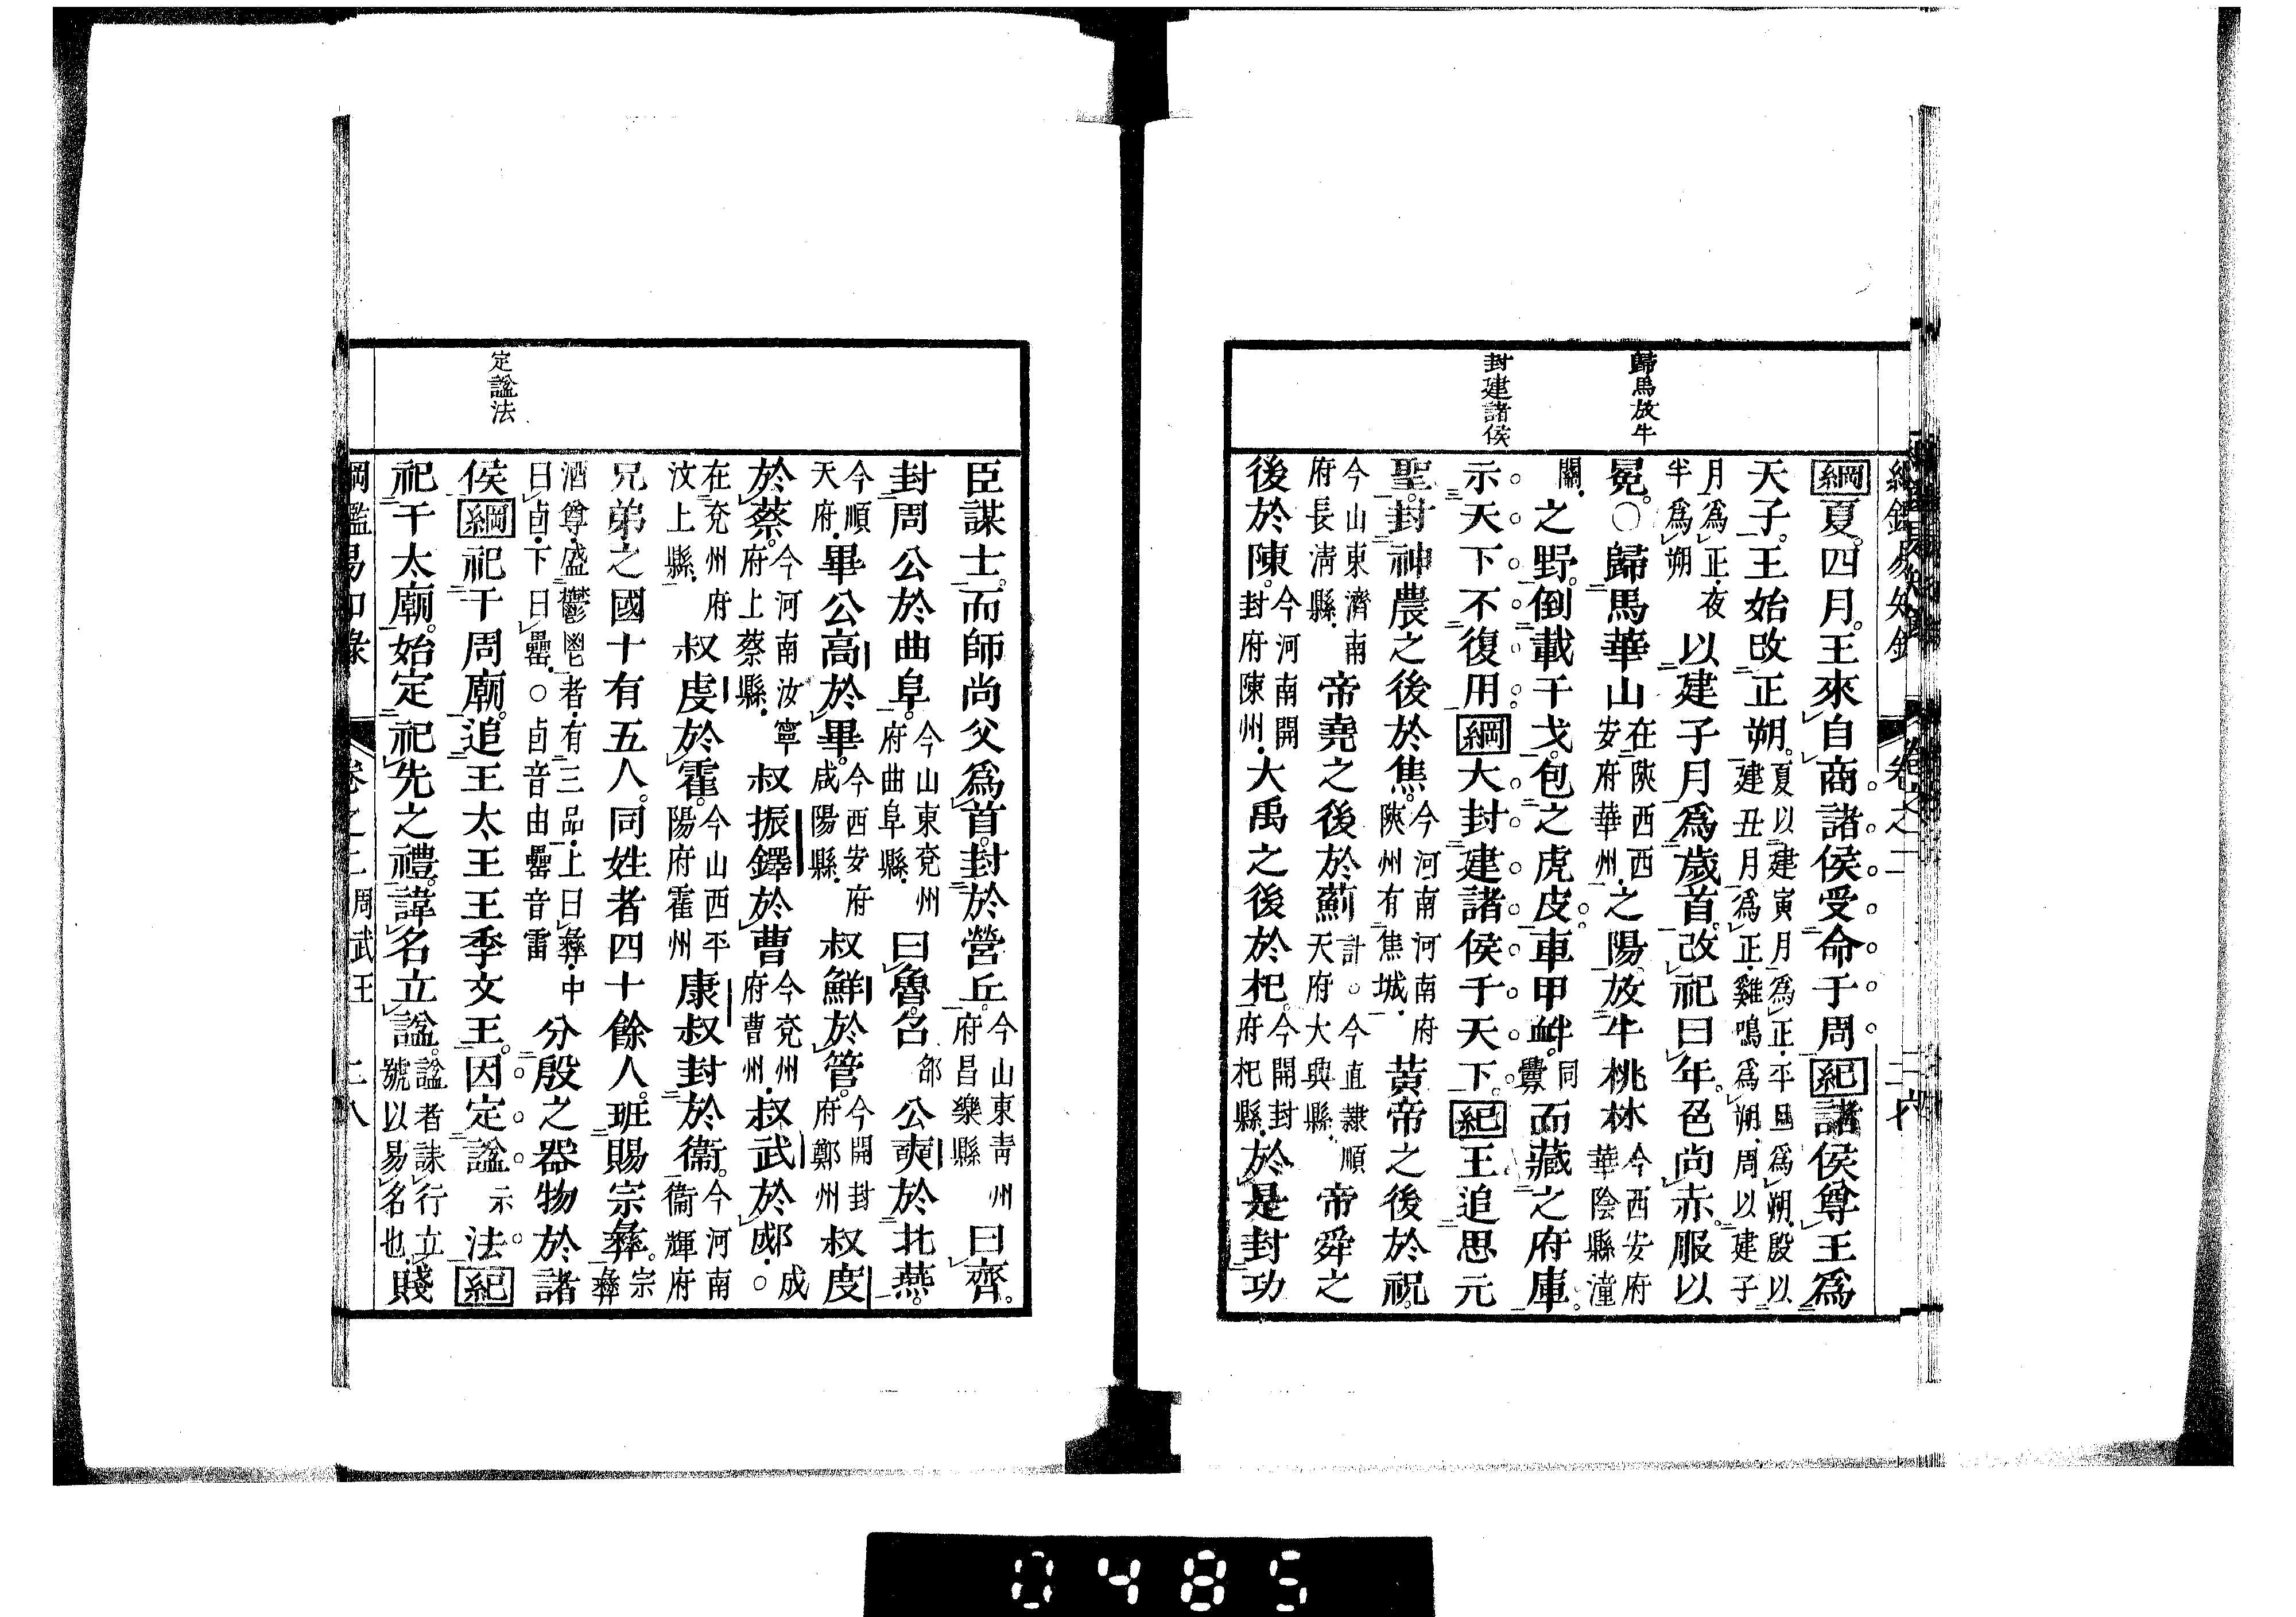 歸馬放牛
封建諸侯
綱夏。四月。王來自商。諸侯受命于周紀諸侯尊王爲
天子。王始改正朔。夏以建寅月爲正。平旦爲朔。殷以建丑月爲正。雞鳴爲朔。周以建子
月爲正。夜半爲朔以建子月爲歲首。改祀曰年。色尚赤。服以
冕。○歸馬華山在陝西西安府華州。之陽放牛桃林今西安府華陰縣潼
關。之野。倒載干戈。包之虎皮。車甲衅。同釁而藏之府庫。
示天下不復用綱大封建諸侯于天下。紀王追思元
聖。封神農之後於焦。今河南河南府陝州有焦城。黃帝之後於祝。
今山東濟南府長淸縣。帝堯之後於薊計。○今直隷順天府大興縣。帝舜之
後於陳。今河南開封府陳州。大禹之後於杞。今開封府杞縣。於是封功
定諡法
臣謀士。而師尚父爲首。封於營丘。今山東靑州府昌樂縣曰齊。
封周公於曲阜。今山東兗州府曲阜縣。曰魯。召邵公奭於北燕。
今順天府。畢公高於畢。今西安府咸陽縣。叔鮮於管。今開封府鄭州叔度
於蔡。今河南汝寧府上蔡縣。叔振鐸於曹今兗州府曹州。叔武於郕。成○
在兗州府汶上縣。叔虔於霍。今山西平陽府霍州康叔封於衞。今河南衞輝府
兄弟之國十有五人。同姓者四十餘人。班賜宗彝。宗彝
酒尊。盛鬱鬯者。有三品。上曰彝。中曰卣。下曰罍。○卣音由罍音雷分殷之器物於諸
侯綱祀于周廟。追王太王王季文王。因定諡示法紀
祀于太廟。始定祀先之禮。諱名立諡。諡者誄行立號以易名也。賤
綱鑑易知錄 卷之二 周武王 二八